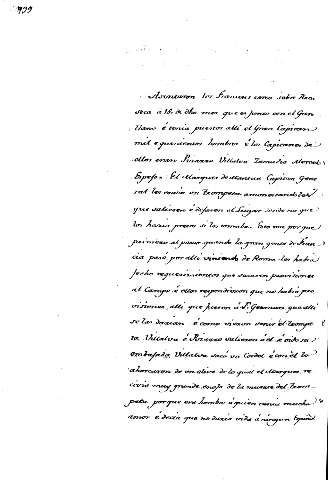 Asentaron los Franceses cerco sobre Roca
seca a 18. de dho mes que es junto con el Gare
llano é tenia puestos allí el Gran Capitan
mil e quinientos hombres é los Capitanes de
ellos eran Pizarro Villalva Zamudio
Espejo. El Marques de Mantua Capitan Gene
ral les envió un Trompeta
que saliesen é dejasen el Lugar donde no que
los haria piezas si los tomaba. Esto era porque
primero al pasar quando la gran gente de Fran
cia pasó por allí viniendo de Roma les habia
fecho requerimientos que sacasen provisiones
al Campo é ellos respondieron que no habia pro
visiones allí que fuesen á Sn. German que allí
se las darian é como vieron venir el trompe
ta Villalva é Pizarro salieron á él é oida su
embajada Villalva sacó un Cordel é con él lo
ahorcaron de un olivo de lo qual el Marques re
civió muy grande enojo de la muerte del Trom
peta porque era hombre á quien tenia mucho
amor é decia que no daria vida á ningun Español